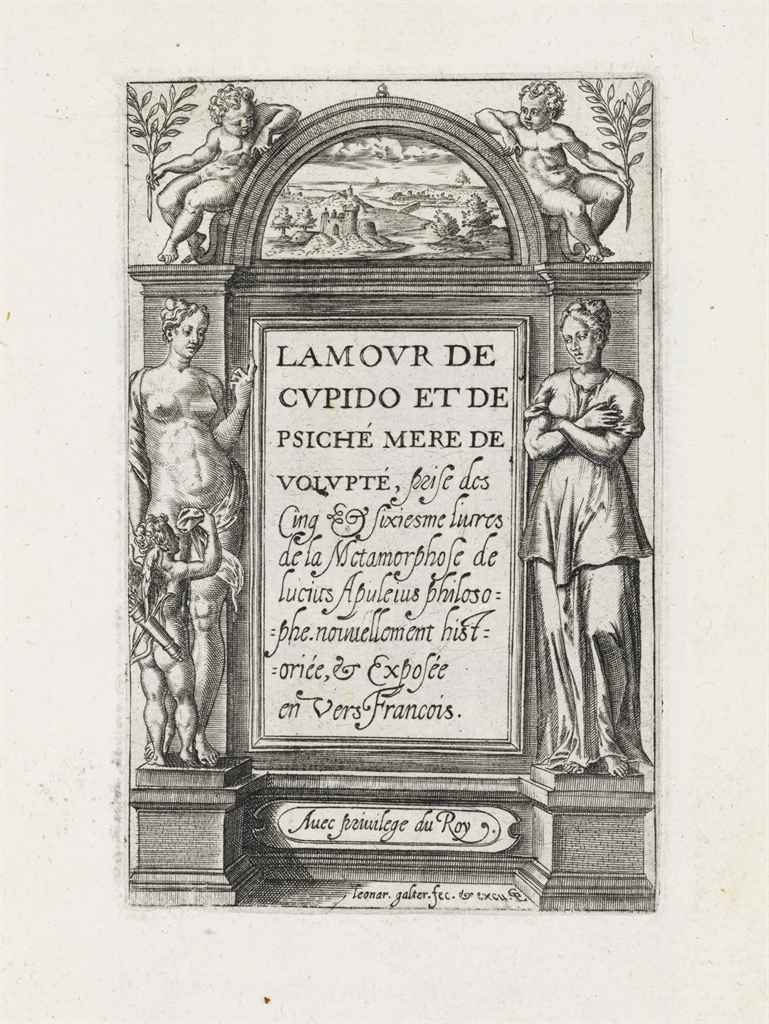 LAMOVR DE
CVPIDO ET DE
PSICHÉ MERE DE
VOLVPTÉ, prise des
Cinq & sixiesme liures
de la Metamorphose de
lucius Apuleius philoso=
=phe. nouuellement hist=
=oriée, & Exposée
en Vers Francois.
Auec priuilege du Roy
leonar. galter. fec. & excu.